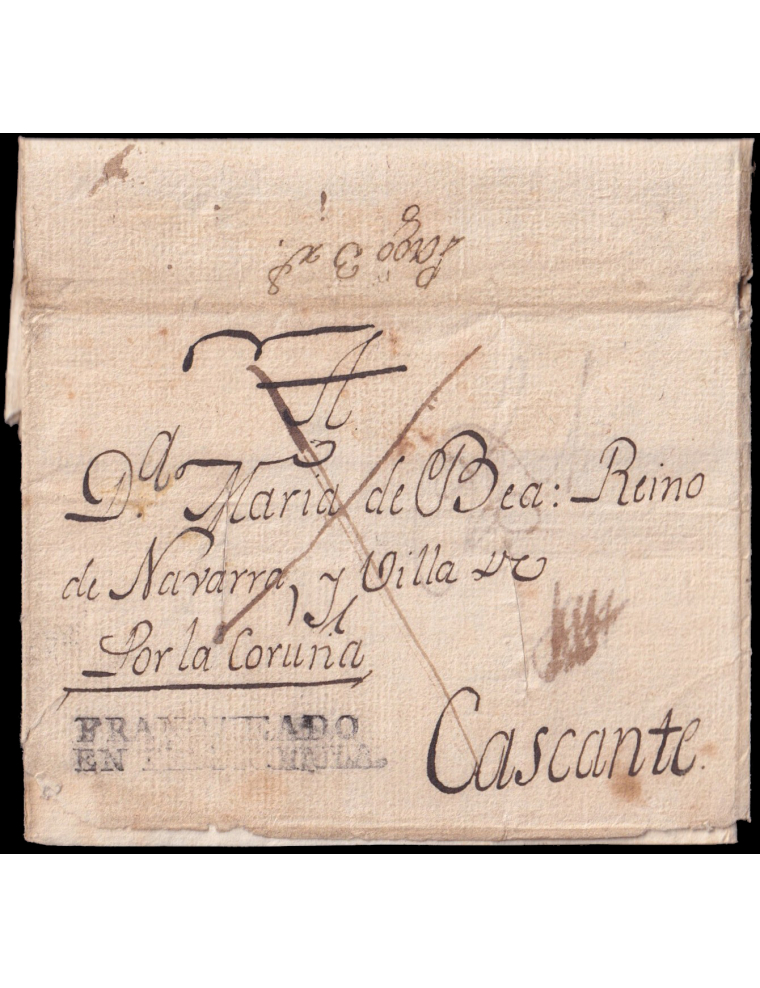 Pago 3
A
D.ª Maria de Bea: Reino
de Navarra, y Villa de
Por la Coruña
FRANQUEADO
EN
Cascante.